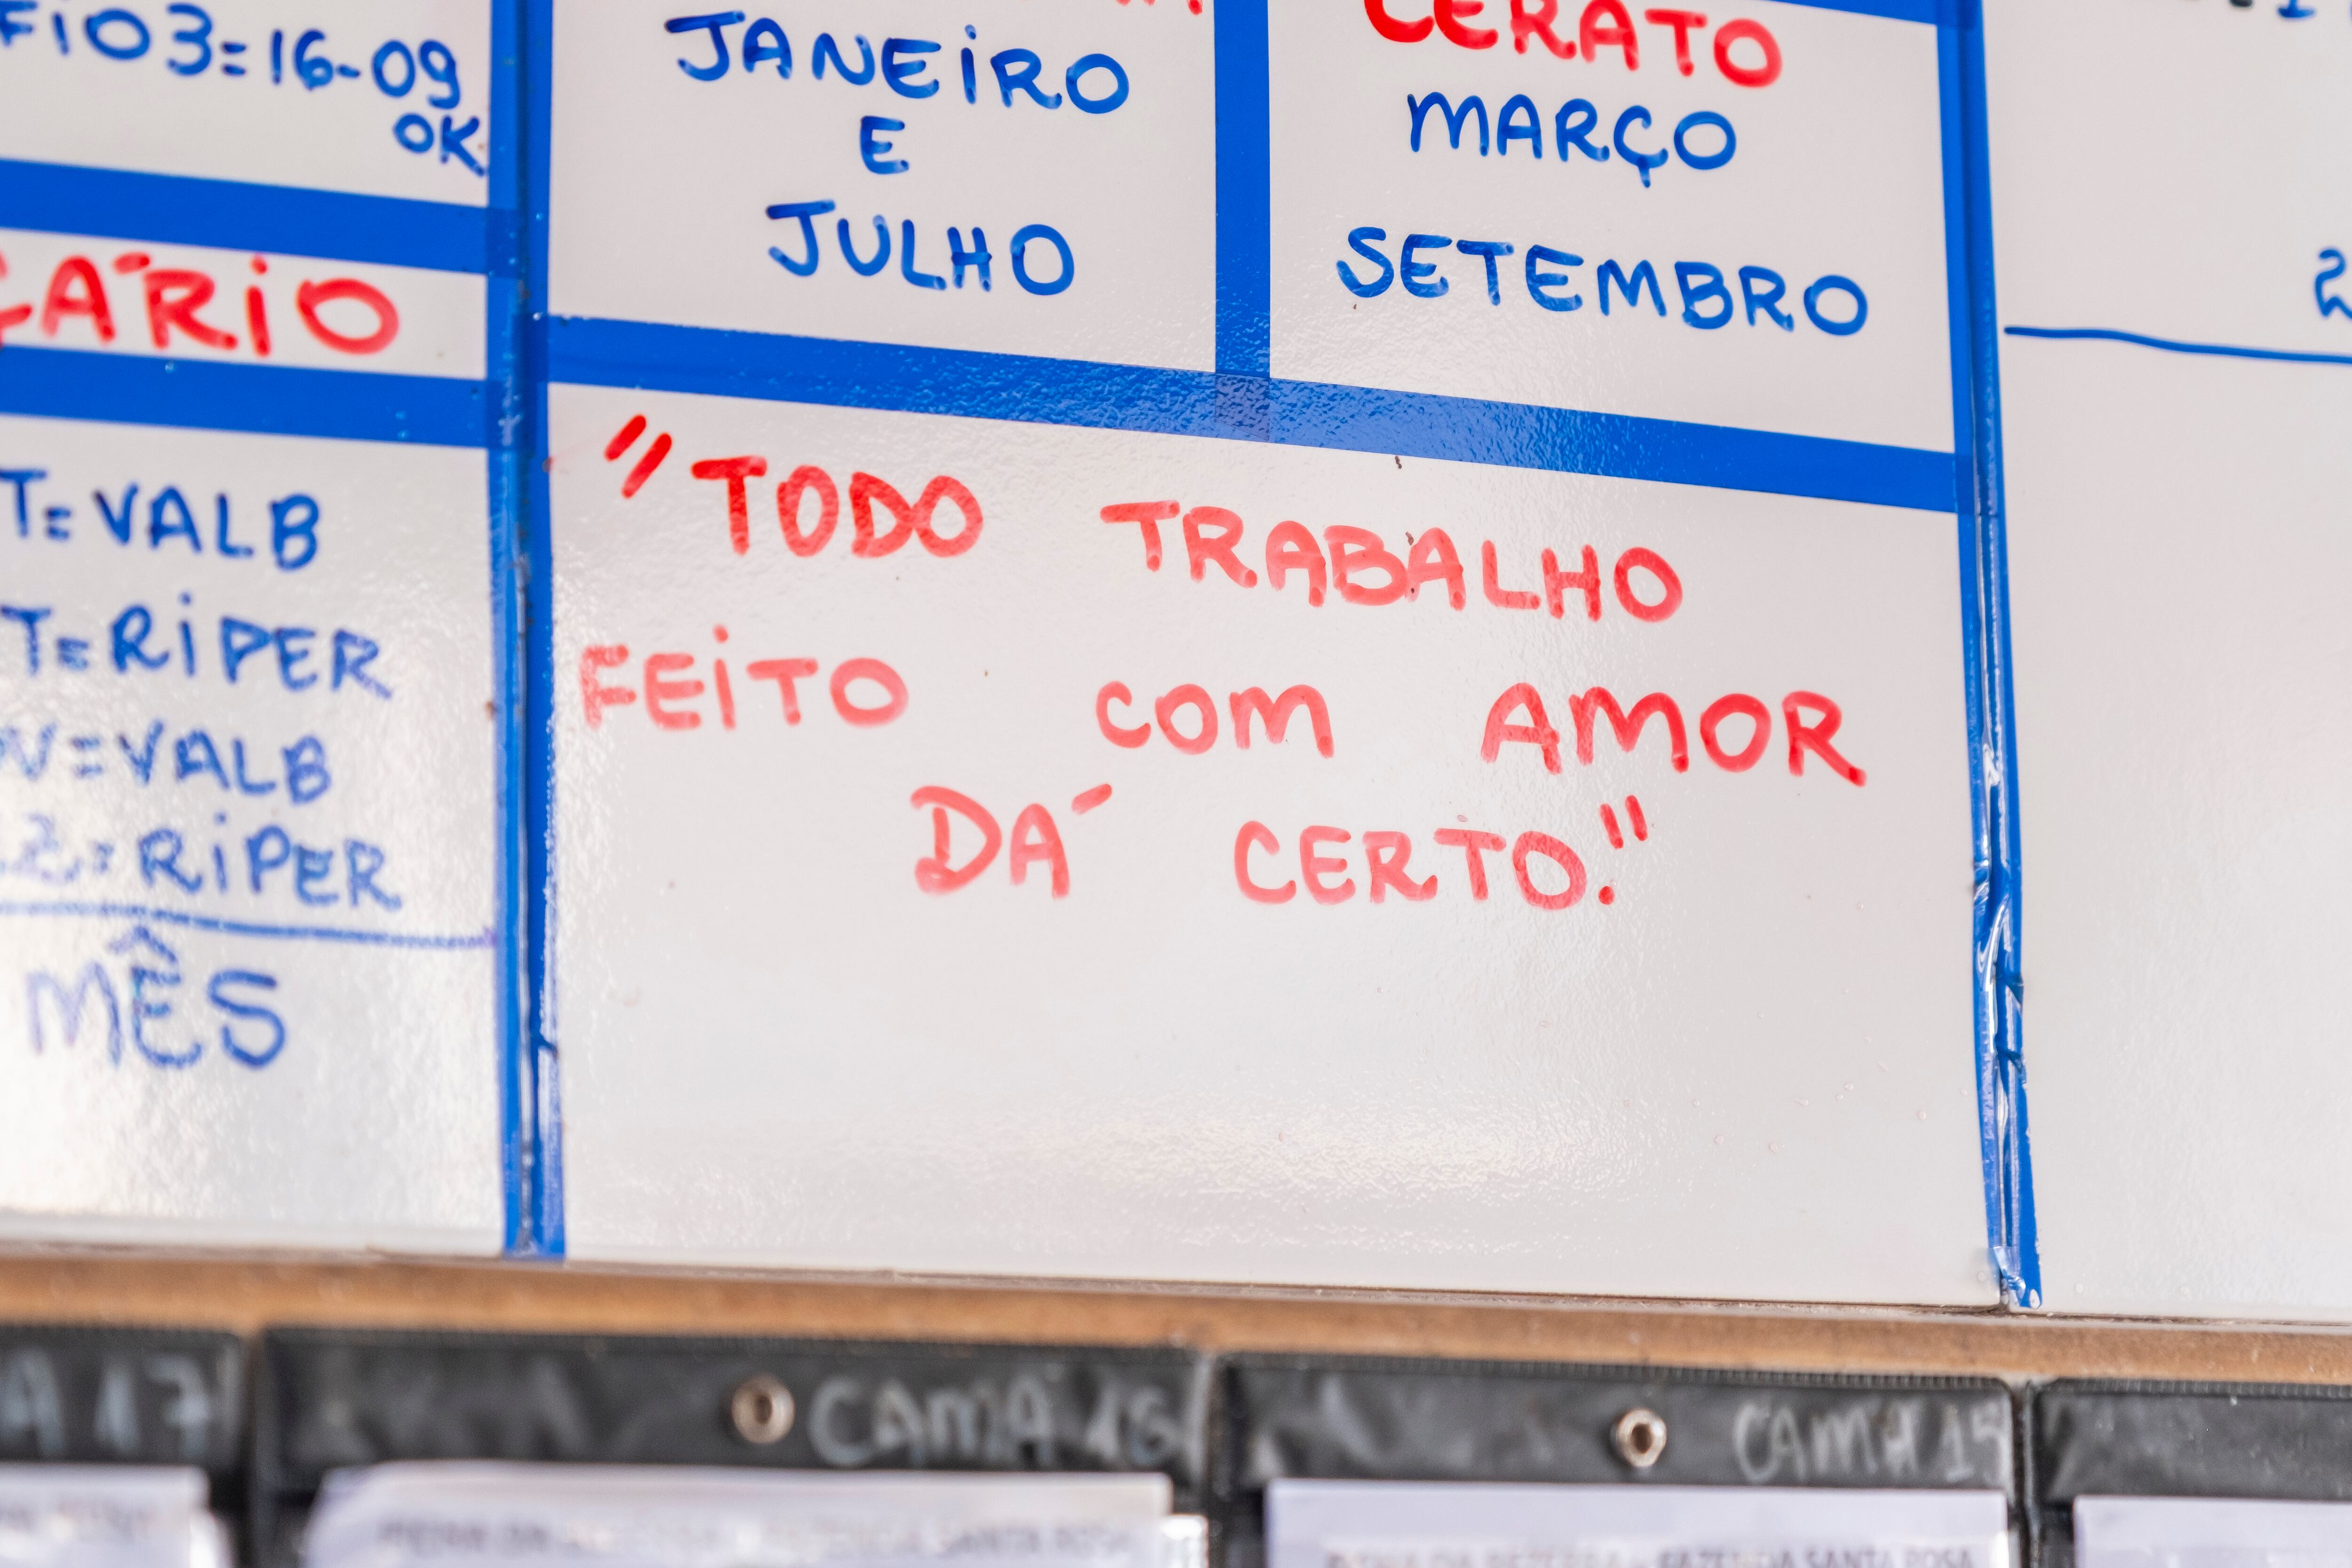 FIO 3=16-09
OK
JANEIRO
E
JULHO
CERATO
MARÇO
SETEMBRO
T=VALB
T=RIPER
=VALB
=RIPER
MÊS
"TODO TRABALHO
FEITO COM AMOR
DÁ CERTO."
2
17
CAMA 16
CAMA 15
FAZENDA SANTA ROSA
FAZENDA SANTA ROSA